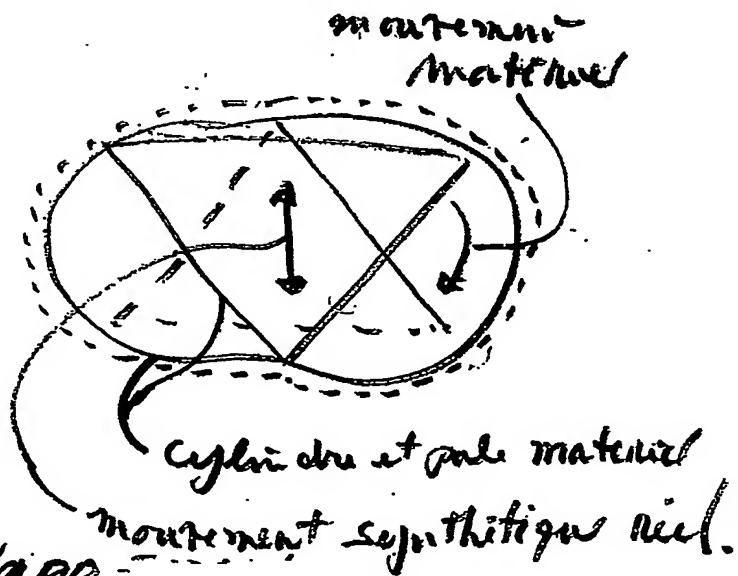 mouvement
matériel
cylindre et pale matériel
mouvement synthétique réel.